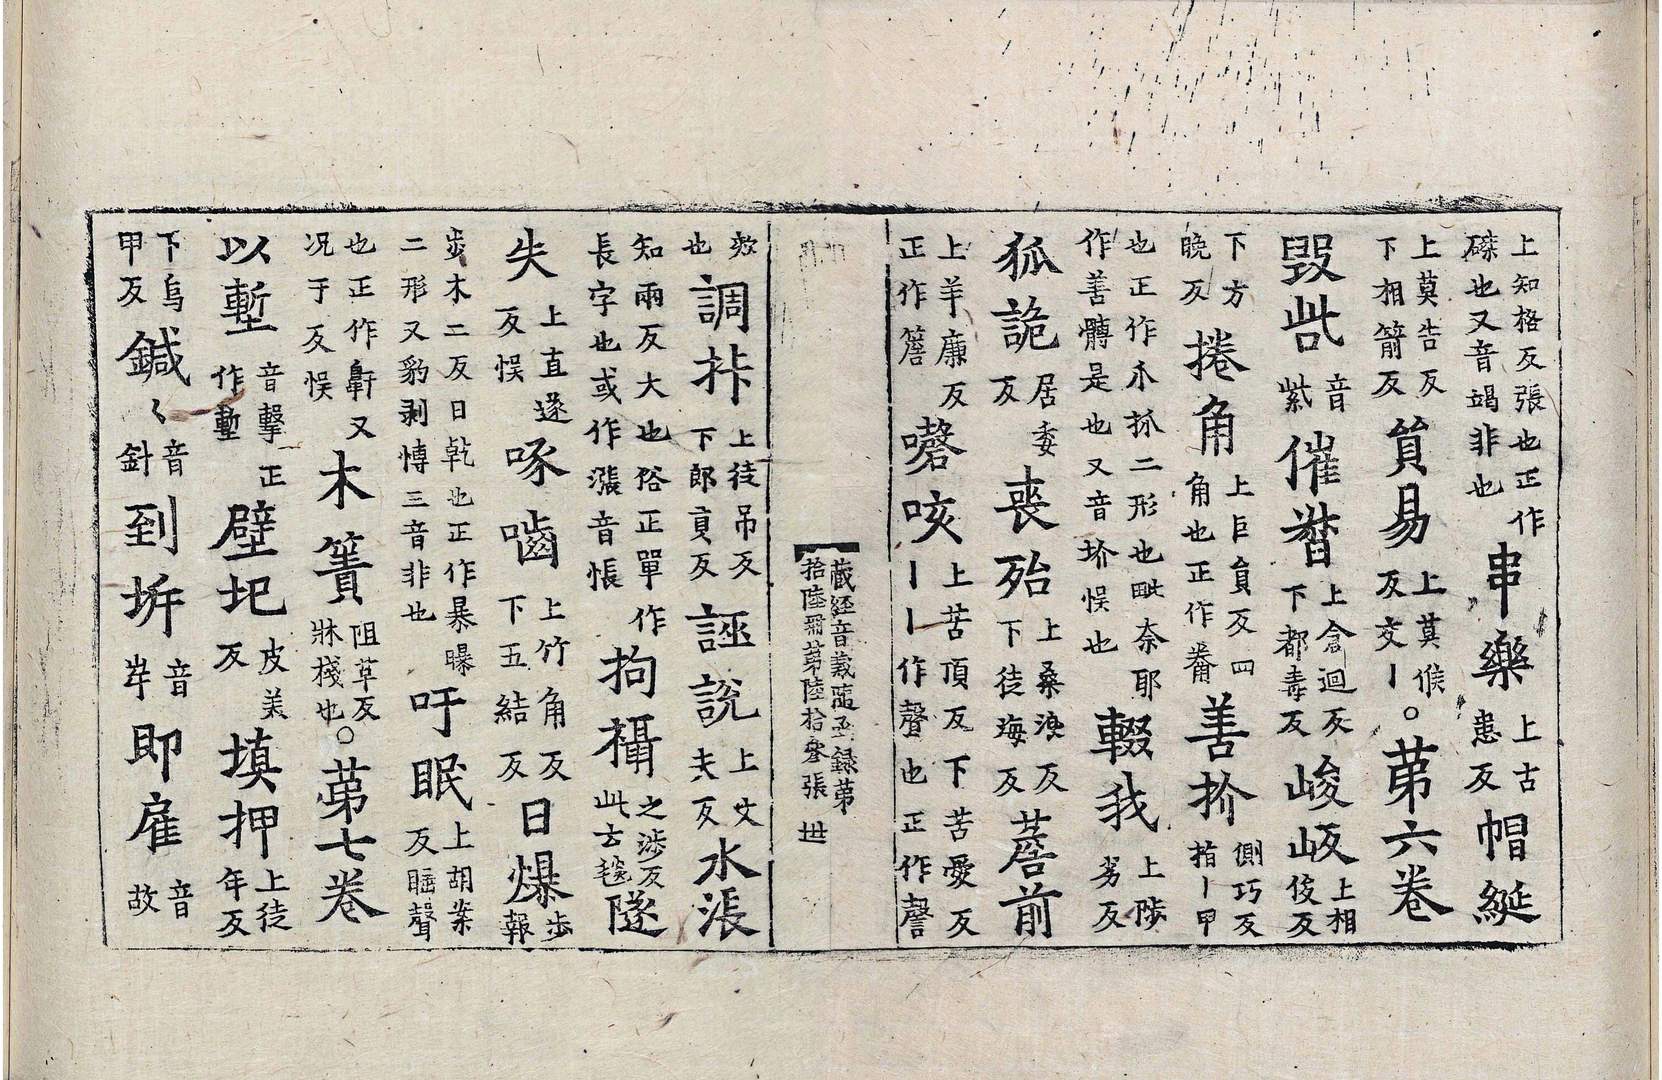 上知格反張也正作磔也又音竭非也 串樂 上古患反 帽綖
上莫告反下相箭反 貿易 上莫候反交丨 。第六卷
毀呰 音紫 催督 上倉迴反下都毒反 峻岅 上相俊反
下方晚反 捲角 上巨負反四角也正作觠 善扴 側巧反揩丨甲
也正作爪抓二形也毗奈耶作善髆是也又音扴悮也 輟我 上陟劣反
狐詭 居委反 喪殆 上桑浪反下徒海反 蓎前
上羊廉反正作簷 嚽咳 上苦頂反下苦愛反丨丨作聲也正作謦
藏經音義隨函錄第
拾陸冊第陸拾叁張 丗
欬也 調袟 上徒吊反下郎貢反 誣說 上文夫反 水漲
知兩反大也俗正單作長字也或作漲音悵 拘攝 之涉反此方毯 隧
失 上直遂反悮 啄嚙 上竹角反下五結反 日爆 步報
步木二反日乾也正作暴曝二形又豹剥愽三音非也 吁眠 上胡業反眠聲
也正作鼾又況于反悮 木簀 阻革反牀棧也 。第七卷
以塹 音擊正作墼 壁圯 皮美反 填押 上徒年反
下烏甲反 鍼〻 音針 到㘸 音岸 即雇 音故